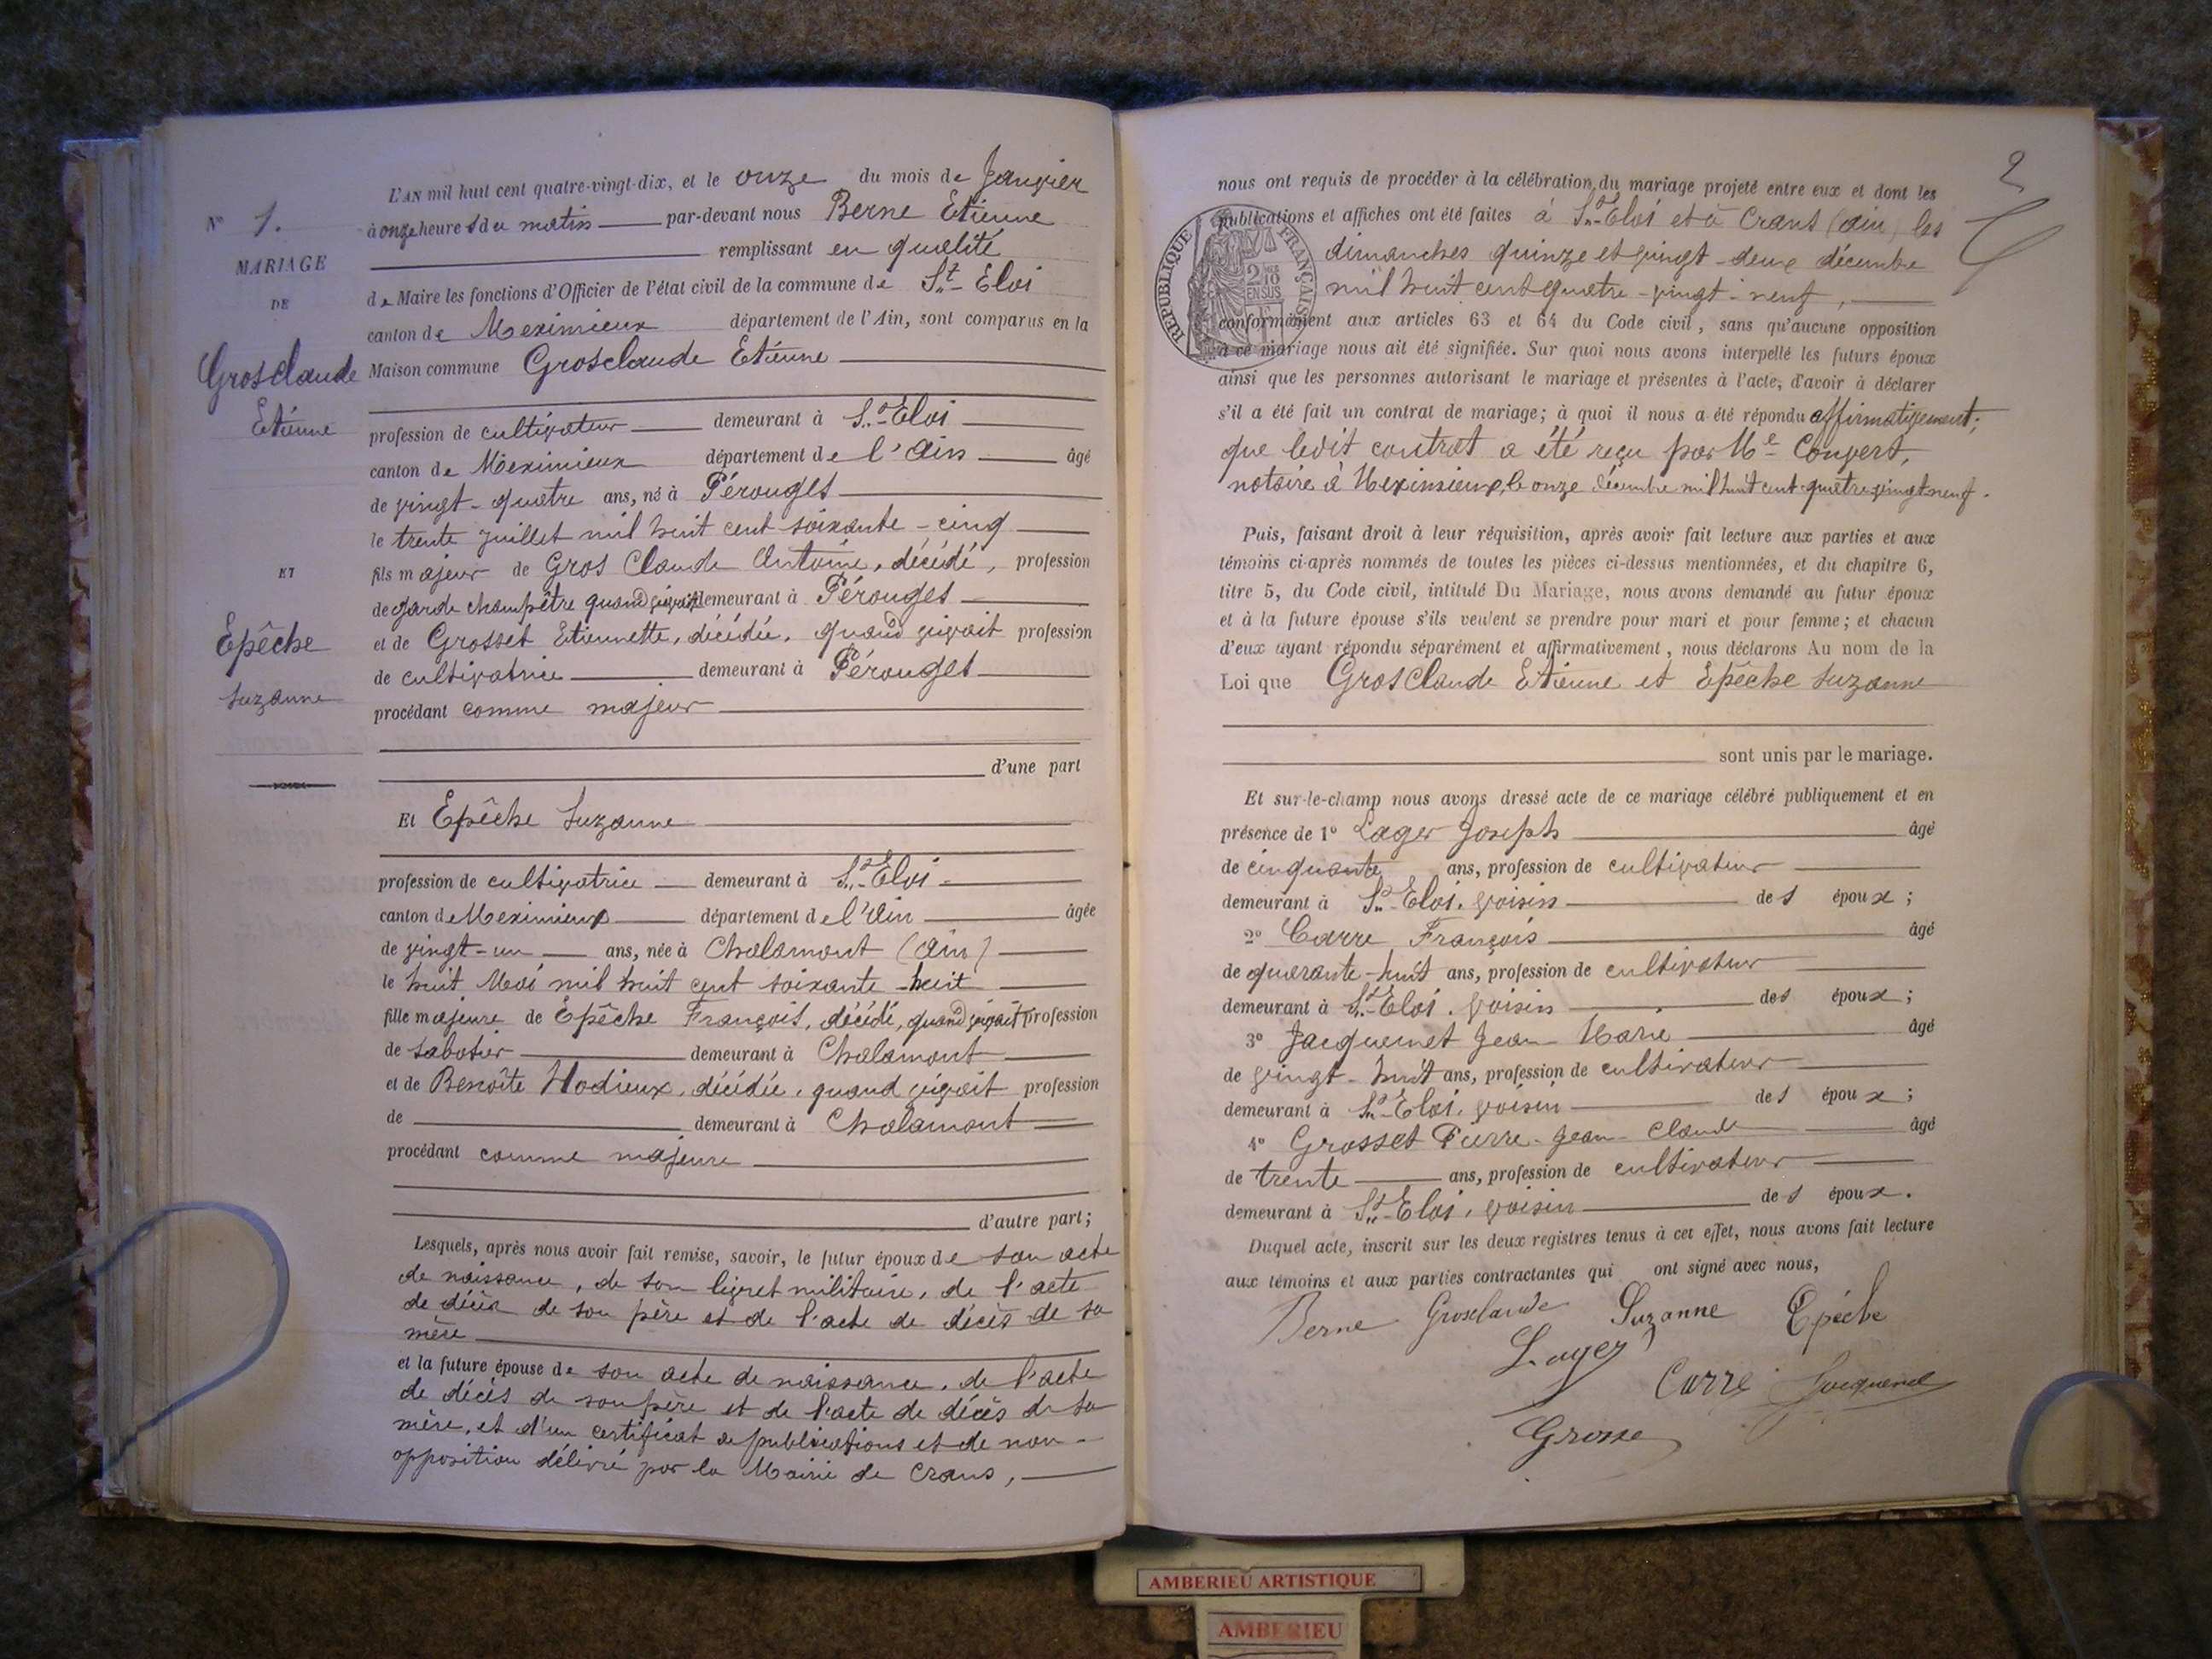 L'AN mil huit cent quatre-vingt-dix, et le onze du mois de Janvier
N° 1.
à onze heures du matin par-devant nous Berne Etienne
remplissant en qualité
MARIAGE
de Maire les fonctions d'Officier de l'état civil de la commune de St-Eloi
DE
canton de Meximieux département de l'Ain, sont comparus en la
Grosclaude
Maison commune Grosclaude Etienne
Etienne
profession de cultivateur demeurant à St-Eloi
canton de Meximieux département de l'Ain âgé
de vingt-quatre ans, né à Pérouges
le trente juillet mil huit cent soixante-cinq
ET
fils majeur de Gros Claude Antoine, décédé, profession
de garde champêtre quand vivait demeurant à Pérouges
Epêche
et de Grosset Etiennette, décédée, quand vivait profession
Suzanne
de cultivatrice demeurant à Pérouges
procédant comme majeur
d'une part
Et Epêche Suzanne
profession de cultivatrice demeurant à St-Eloi
canton de Meximieux département de l'Ain âgée
de vingt-un ans, née à Chalamont (Ain)
le huit Mai mil huit cent soixante-huit
fille majeure de Epêche François, décédé, quand vivait profession
de sabotier demeurant à Chalamont
et de Benoîte Hodieux, décédée, quand vivait profession
de demeurant à Chalamont
procédant comme majeure
d'autre part;
Lesquels, après nous avoir fait remise, savoir, le futur époux de son acte
de naissance, de son livret militaire, de l'acte
de décès de son père et de l'acte de décès de sa
mère
et la future épouse de son acte de naissance, de l'acte
de décès de son père et de l'acte de décès de sa
mère, et d'un certificat de publications et de non-
opposition délivré par la Mairie de Crans,
2
nous ont requis de procéder à la célébration du mariage projeté entre eux et dont les
publications et affiches ont été faites à St-Eloi et à Crans (Ain) les
dimanches quinze et vingt-deux décembre
mil huit cent quatre-vingt-neuf,
RÉPUBLIQUE FRANÇAISE
2 10
EN SUS
conformément aux articles 63 et 64 du Code civil, sans qu'aucune opposition
à ce mariage nous ait été signifiée. Sur quoi nous avons interpellé les futurs époux
ainsi que les personnes autorisant le mariage et présentes à l'acte, d'avoir à déclarer
s'il a été fait un contrat de mariage; à quoi il nous a été répondu affirmativement;
que ledit contrat a été reçu par Me Convert,
notaire à Meximieux, le onze décembre mil huit cent quatre vingt neuf.
Puis, faisant droit à leur réquisition, après avoir fait lecture aux parties et aux
témoins ci-après nommés de toutes les pièces ci-dessus mentionnées, et du chapitre 6,
titre 5, du Code civil, intitulé Du Mariage, nous avons demandé au futur époux
et à la future épouse s'ils veulent se prendre pour mari et pour femme; et chacun
d'eux ayant répondu séparément et affirmativement, nous déclarons Au nom de la
Loi que GrosClaude Etienne et Epêche Suzanne
sont unis par le mariage.
Et sur-le-champ nous avons dressé acte de ce mariage célébré publiquement et en
présence de 1° Lager Joseph âgé
de cinquante ans, profession de cultivateur
demeurant à St-Eloi, voisin des époux;
2° Carre François âgé
de quarante-huit ans, profession de cultivateur
demeurant à St-Eloi, voisin des époux;
3° Jacquemet Jean Marie âgé
de vingt-huit ans, profession de cultivateur
demeurant à St-Eloi, voisin des époux;
4° Grosset Pierre-Jean-Claude âgé
de trente ans, profession de cultivateur
demeurant à St-Eloi, voisin des époux.
Duquel acte, inscrit sur les deux registres tenus à cet effet, nous avons fait lecture
aux témoins et aux parties contractantes qui ont signé avec nous,
Berne Grosclaude Suzanne Epéche
Lager
Carre Jacquemet
Grosse
AMBERIEU ARTISTIQUE
AMBERIEU